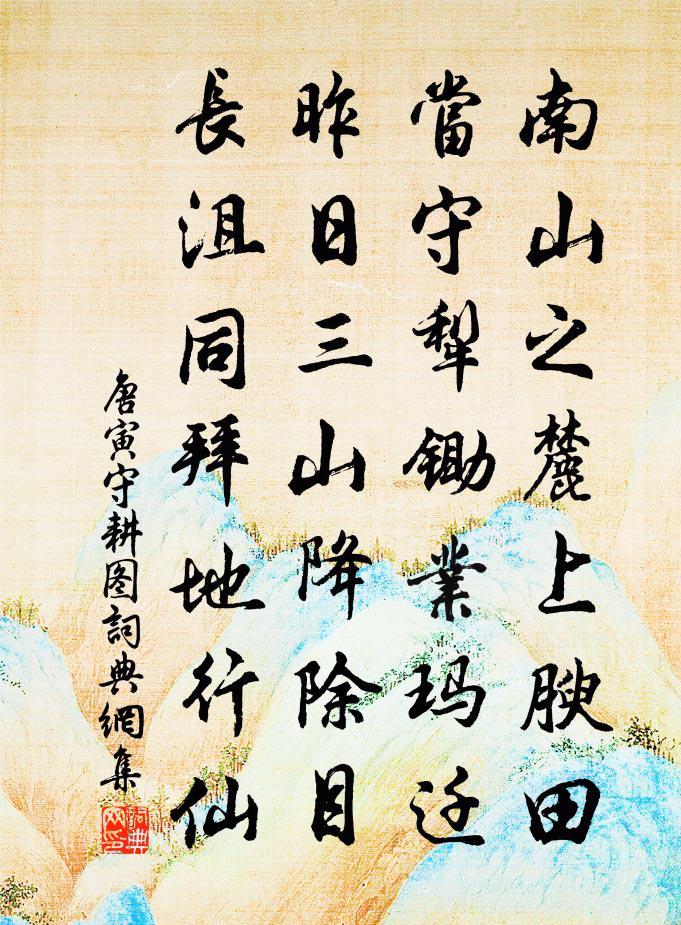 南山之麓上腴田
當守犁鋤業玛迁
昨日三山降除目
長沮同拜地行仙
唐寅守耕图詞典網集
詞典网印